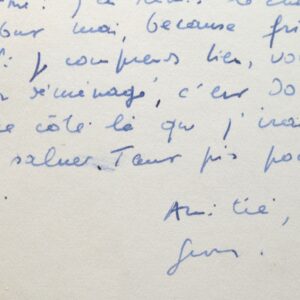 pour moi, because
Si je comprends bien, vo
déménagé, c'est
côté là que j'irai
saluer. Tant pis po
Amitié,